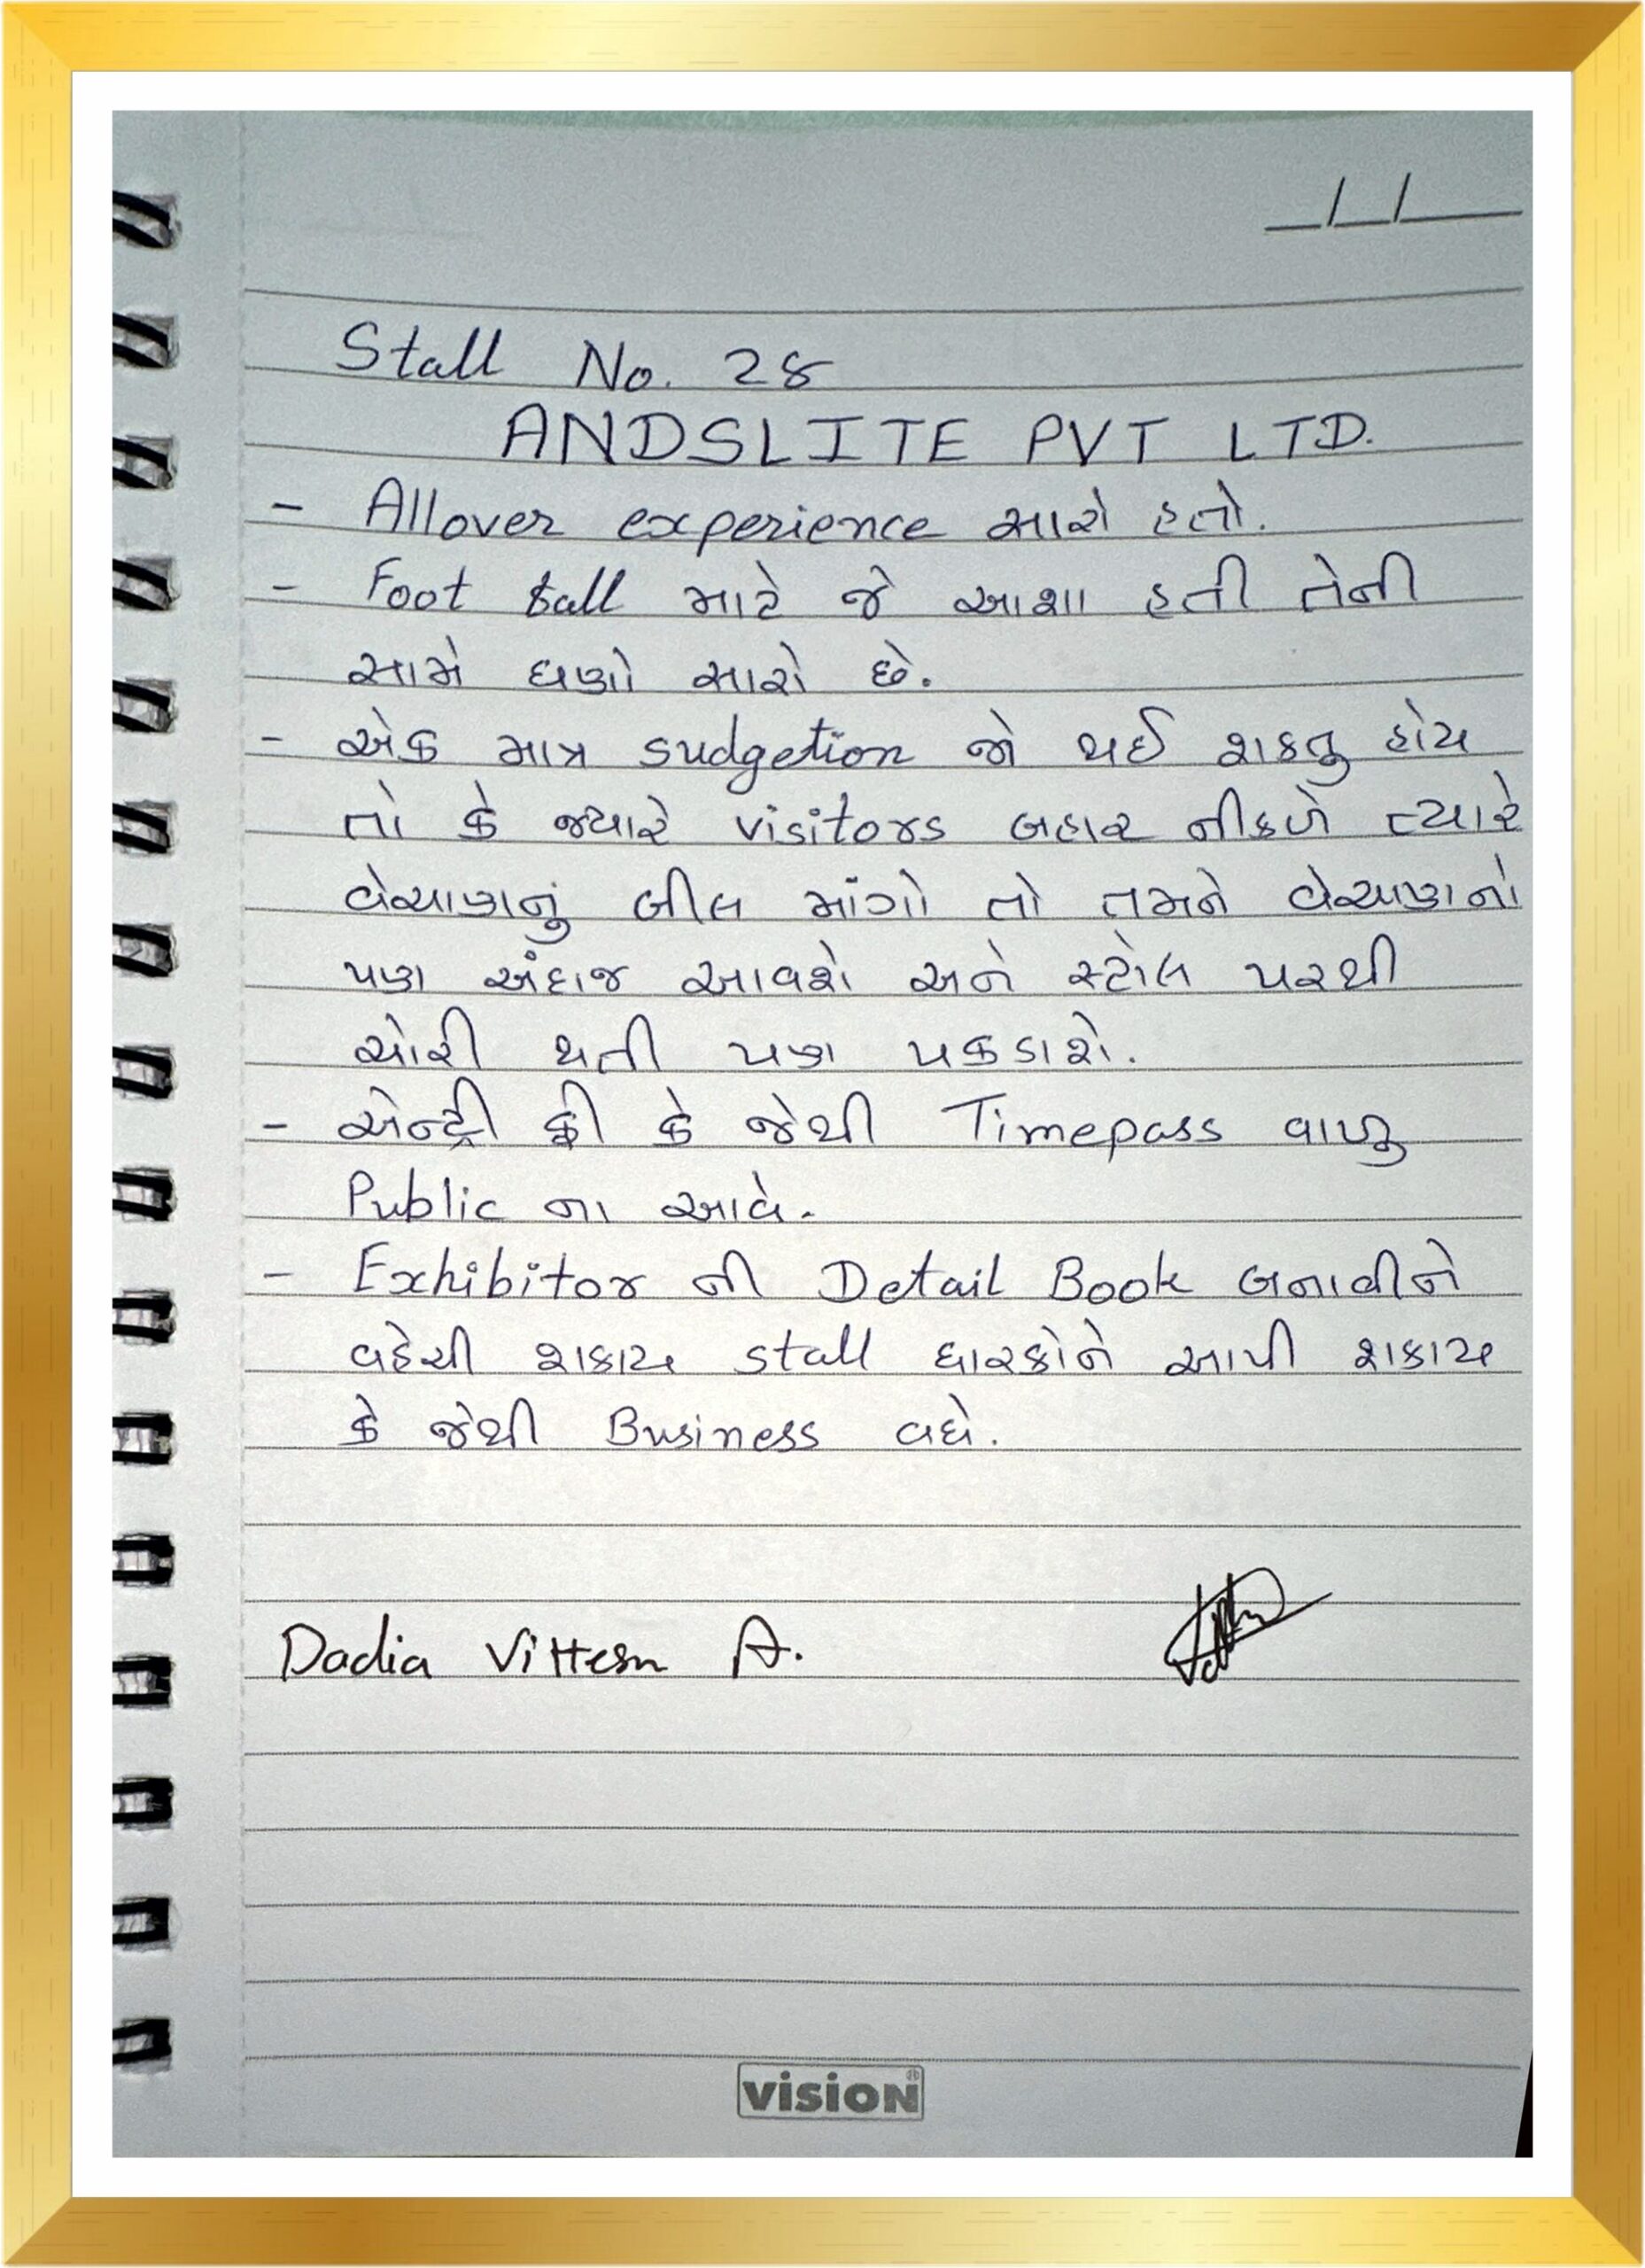 _/_/___
Stall No. 28
ANDSLITE PVT LTD.
- Allover experience સારો હતો.
- Foot ball માટે જે આશા હતી તેની
સામે ઘણો સારો છે.
- એક માત્ર sudgetion જો થઈ શકતુ હોય
તો કે જ્યારે visitors બહાર નીકળે ત્યારે
વેચાણનું બીલ માંગો તો તમને વેચાણનો
પણ અંદાજ આવશે અને સ્ટોલ પરથી
ચોરી થતી પણ પકડાશે.
- એન્ટ્રી ફી કે જેથી Timepass વાળુ
Public ના આવે.
- Exhibitor ની Detail Book બનાવીને
વહેચી શકાય stall ધારકોને આપી શકાય
કે જેથી Business વધે.
Dadia Vittesh A.
vision®